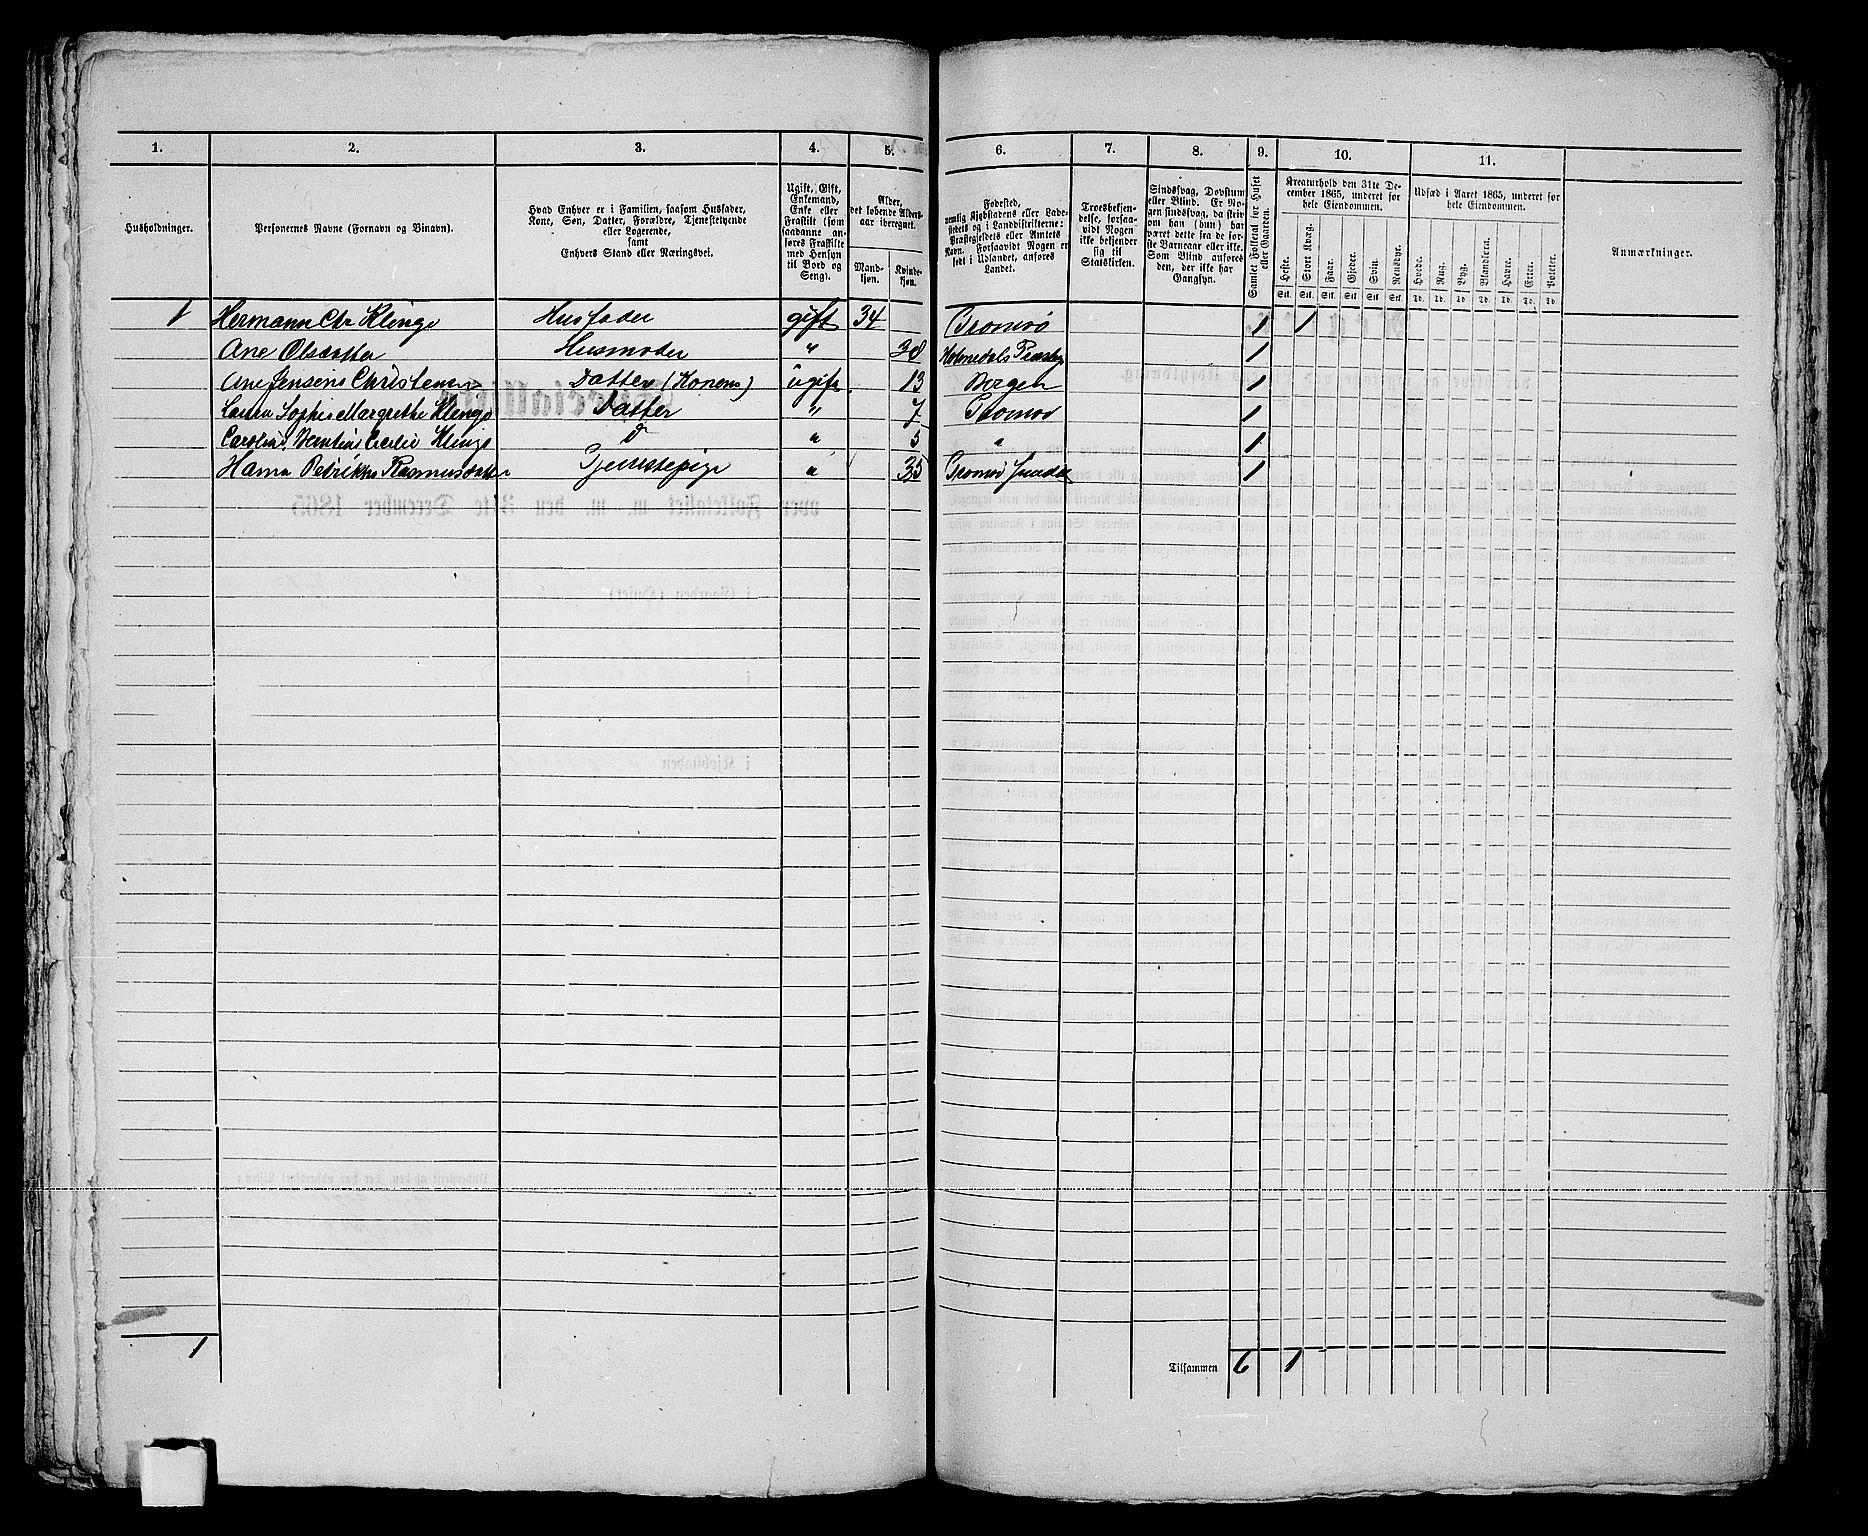 1. 2. 3. 4. 5. 6. 7. 8. 9. 10. 11.
Husholdninger.
Personernes Navne (Fornavn og Binavn).
Hvad Enhver er i Familien, saasom Husfader,
Kone, Søn, Datter, Forældre, Tjenestetyende
eller Logerende,
samt
Enhvers Stand eller Næringsvei.
Ugift, Gift,
Enkemand,
Enke eller
Fraskilt (som
saadanne an-
føres Fraskilte
med Hensyn
til Bord og
Seng).
Alder,
det løbende Alders-
aar iberegnet.
Mand-
kjøn.
Kvinde-
kjøn.
Fødested,
nemlig Kjøbstadens eller Lade-
stedets og i Landdistrikterne:
Præstegjeldets eller Amtets
Navn. Forsaavidt Nogen er
født i Udlandet, anføres
Landet.
Troesbekjen-
delse, forsaa-
vidt Nogen
ikke bekjender
sig til
Statskirken.
Sindssvag, Døvstum
eller Blind. Er No-
gen sindssvag, da skriv
om han (hun) har
været dette fra de før-
ste Barneaar eller ikke.
Som Blind anføres
den, der ikke har
Gangsyn.
Samlet Folketal for Huset
eller Gaarden.
Kreaturhold den 31te De-
cember 1865, underet for
hele Eiendommen.
Heste. Stort Kvæg. Faar. Gjeder. Svin. Rensdyr.
Stk. Stk. Stk. Stk. Stk. Stk.
Udsæd i Aaret 1865, underet for
hele Eiendommen.
Hvede. Rug. Byg. Blandkorn. Havre. Erter. Poteter.
Td. Td. Td. Td. Td. Td. Td.
Anmærkninger.
1 Hermann Chr Klinge Husfader gift 34 Tromsø 1 1
Ane Olsdatter Husmoder " 38 Holmedals Præstg 1
Ane Jensine Christensen Datter (Konens) ugift 13 Bergen 1
Laura Sophie Margrethe Klinge Datter " 7 Tromsø 1
Caroline Berntine Cecilie Klinge D " 5 " 1
Hanna Petrikke Rasmusdatter Tjenestepige " 35 Tromsø 1
1 Tilsammen 6 1